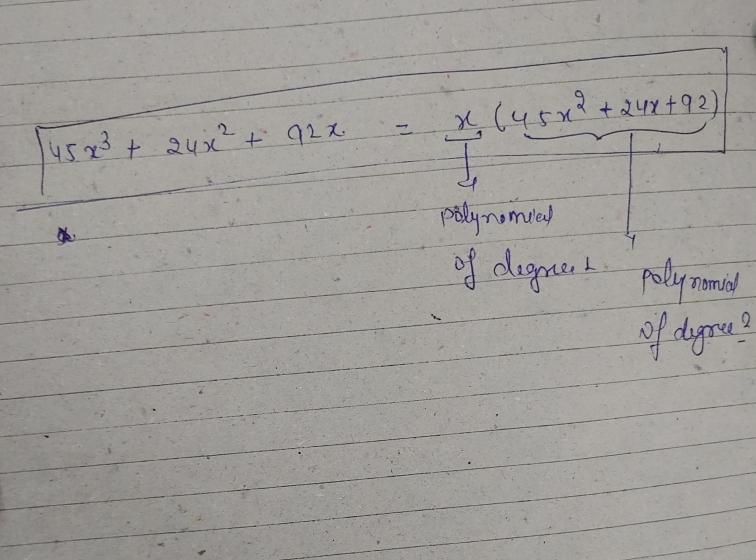 45x³ + 24x² + 92x = x (45x² + 24x + 92)
polynomial
of degree 1
polynomial
of degree 2